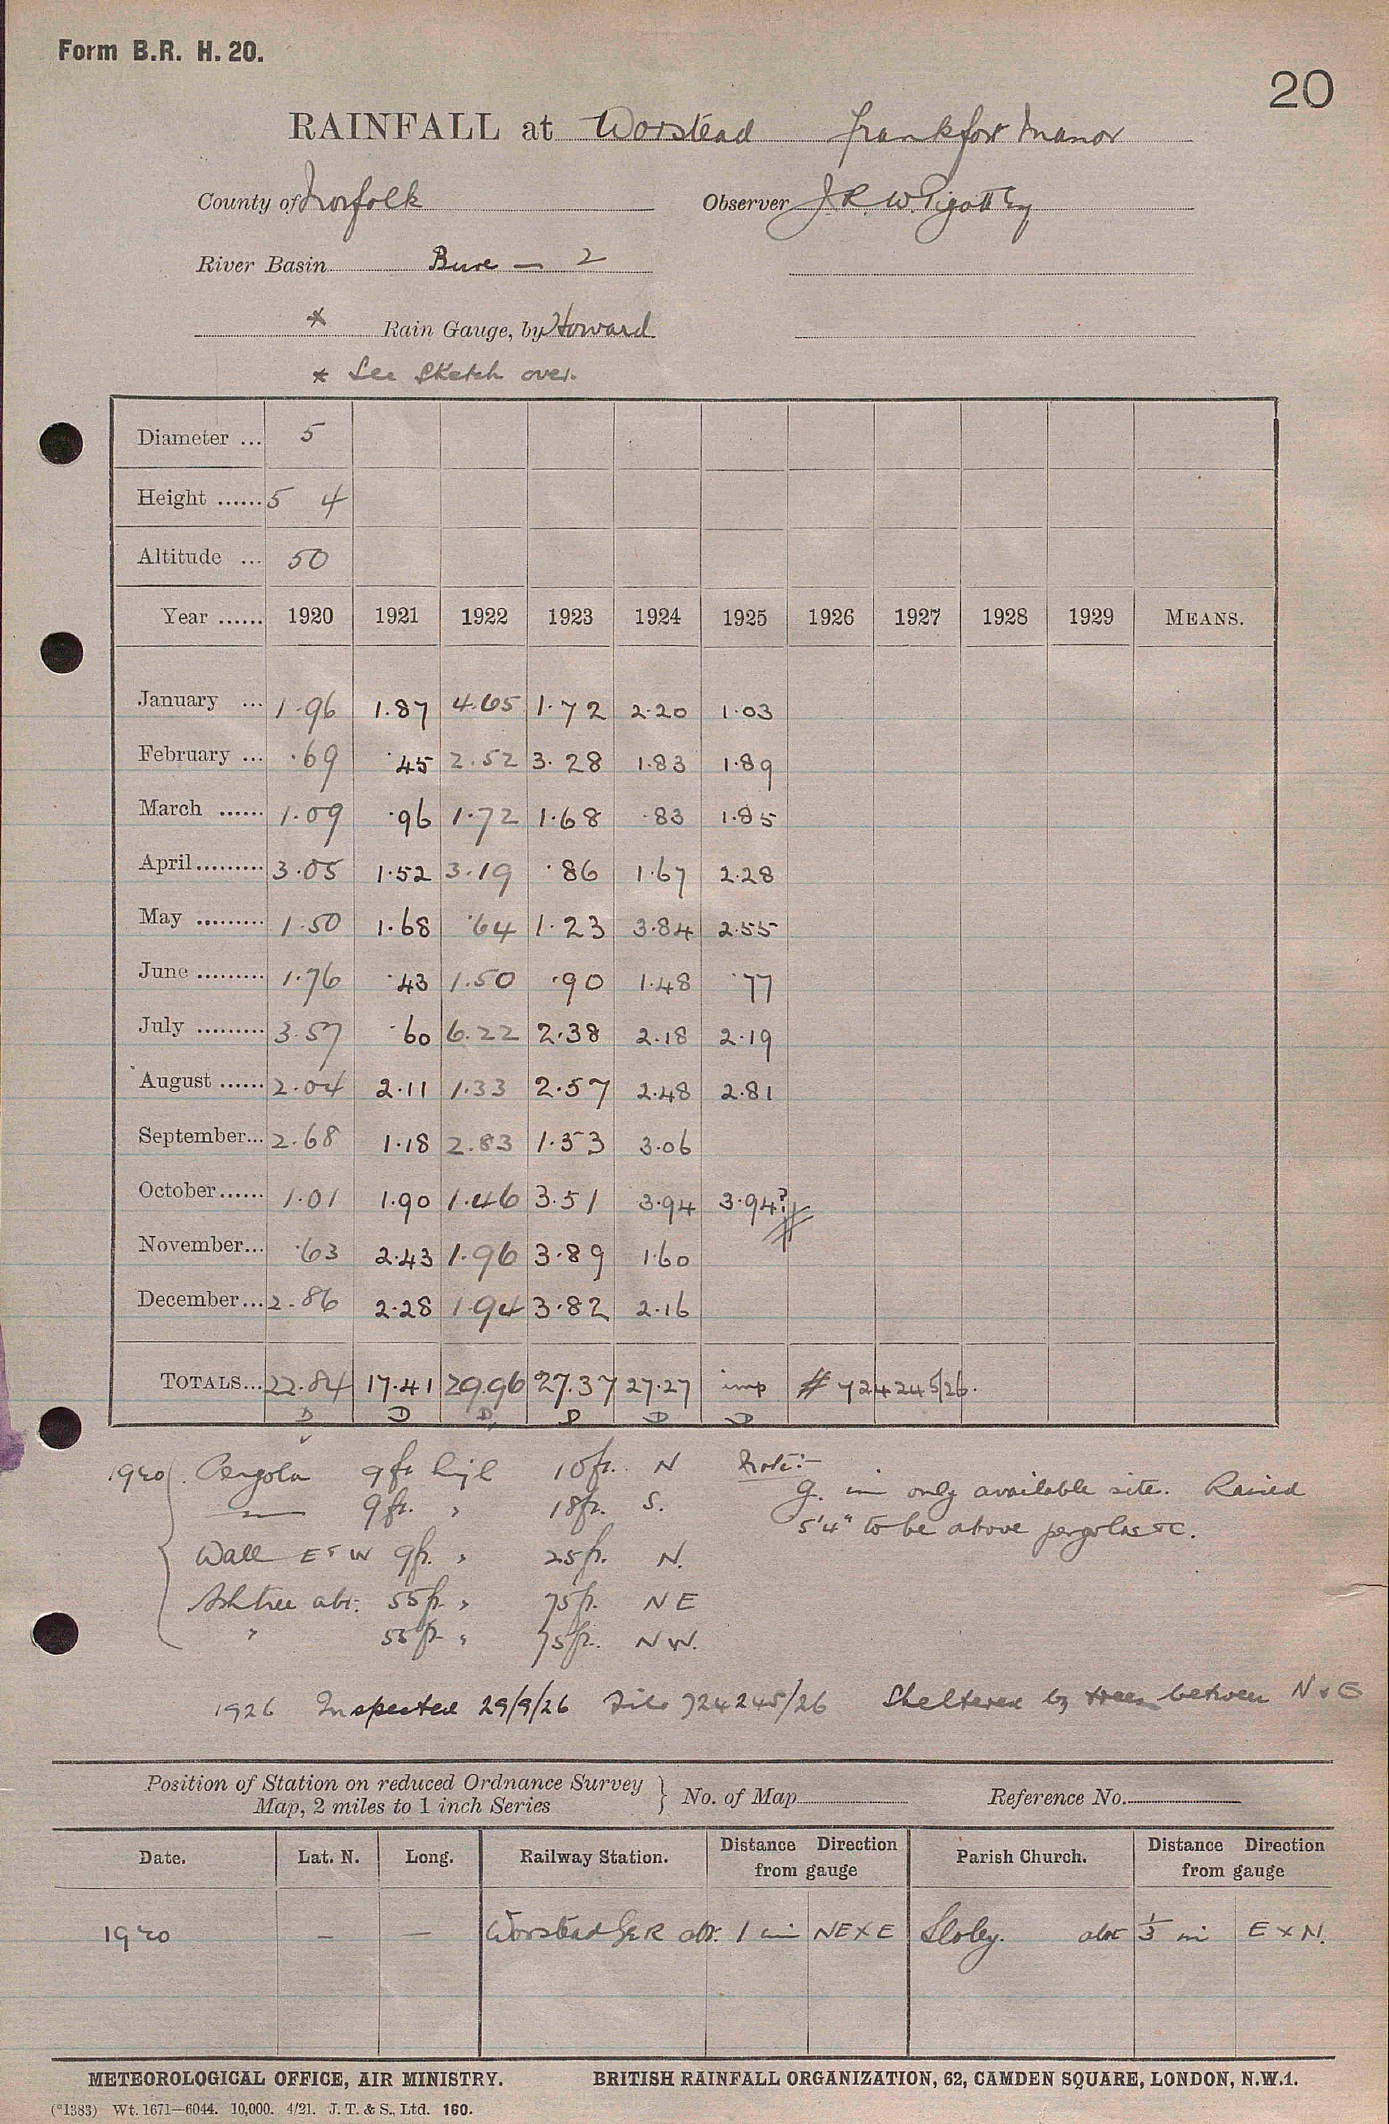 Form B.R. H. 20.
20
RAINFALL at Worstead Frankfort Manor
County of Norfolk Observer J. R. W. Pigott Esq
River Basin Bure — 2
* Rain Gauge, by Howard
* See Sketch over.
Diameter ... 5
Height ...... 5 4
Altitude ... 50
Year ...... 1920 1921 1922 1923 1924 1925 1926 1927 1928 1929 MEANS.
January ... 1.96 1.87 4.65 1.72 2.20 1.03
February ... .69 .45 2.52 3.28 1.83 1.89
March ...... 1.09 .96 1.72 1.68 .83 1.85
April ......... 3.05 1.52 3.19 .86 1.67 2.28
May ......... 1.50 1.68 .64 1.23 3.84 2.55
June ......... 1.76 .43 1.50 .90 1.48 .77
July ......... 3.57 .60 6.22 2.38 2.18 2.19
August ...... 2.04 2.11 1.33 2.57 2.48 2.81
September... 2.68 1.18 2.83 1.53 3.06
October...... 1.01 1.90 1.46 3.51 3.94 3.94? #
November... .63 2.43 1.96 3.89 1.60
December... 2.86 2.28 1.94 3.82 2.16
TOTALS... 22.84 17.41 29.96 27.37 27.27 imp # 724245/26.
D D D D D D
1920 Pergola 9ft high 10ft. N Note:-
— 9ft. " 18ft. S. G. in only available site. Raised
5'4" to be above pergolas &c.
Wall E & W 9ft. " 25ft. N.
Ashtree abt. 55ft. " 75ft. NE
" 55ft. " 75ft. NW.
1926 Inspected 29/9/26 File 724245/26 Sheltered by trees between N & E
Position of Station on reduced Ordnance Survey
Map, 2 miles to 1 inch Series } No. of Map Reference No.
Date. Lat. N. Long. Railway Station. Distance Direction from gauge Parish Church. Distance Direction from gauge
1920 — — Worstead GER abt. 1 mi NE x E Sloley. abt 1/3 mi E x N.
METEOROLOGICAL OFFICE, AIR MINISTRY. BRITISH RAINFALL ORGANIZATION, 62, CAMDEN SQUARE, LONDON, N.W.1.
(*1383) Wt. 1671—6044. 10,000. 4/21. J. T. & S., Ltd. 160.